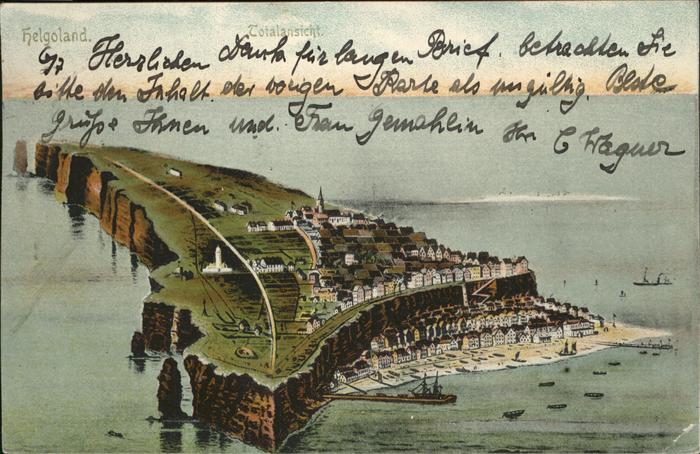 Helgoland.
Totalansicht.
Herzlichen Dank für langen Brief. betrachten Sie
bitte den Inhalt der vorigen Karte als ungültig. Beste
Grüße Ihnen und. Frau Gemahlin Ihr C Wagner